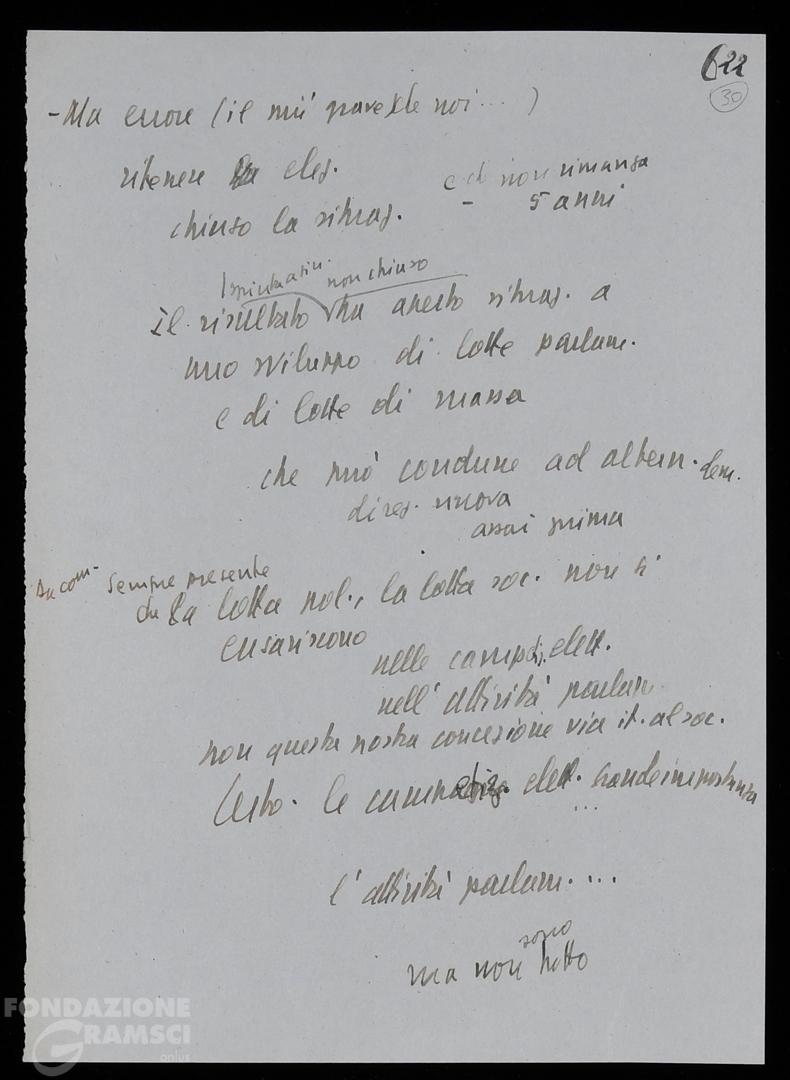 622
30
- Ma errore (il più grave x le noi ... )
ritenere le elez.
chiuso la situaz. e di non rimanga
5 anni
spinta a sin. non chiuso
Il risultato ha aperto situaz. a
uno sviluppo di lotte parlam.
e di lotte di massa
che può condurre ad altern. dem.
direz. nuova
assai prima
sempre presente
che la lotta pol., la lotta soc. non si
esauriscono
nelle camp. elett.
nell'attività parlam.
non questa nostra concezione via it. al soc.
Certo. le campagne elett. grande importanza
...
l'attività parlam. ...
sono
ma non tutto
FONDAZIONE
GRAMSCI
onlus